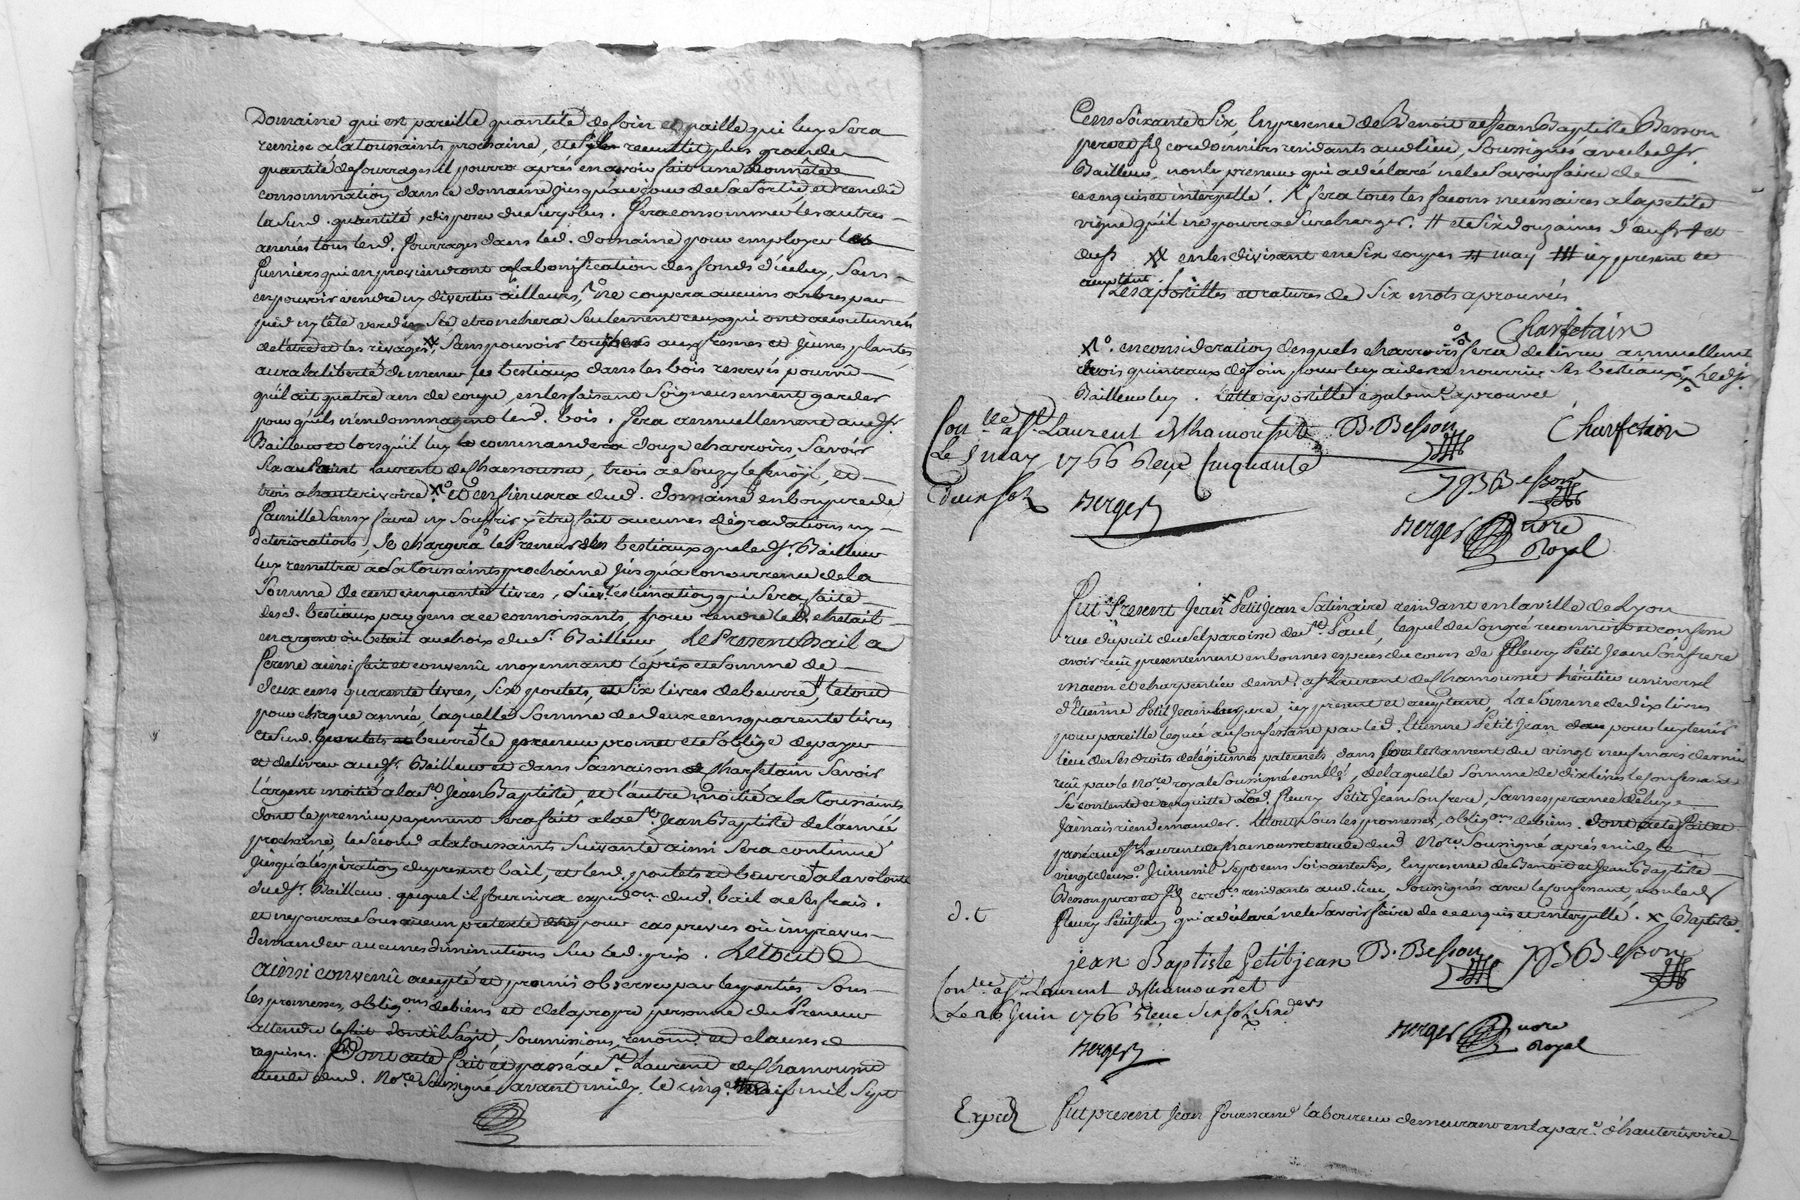 Domaine qui est pareille quantité de foin et paille qui luy sera
remise a la toussaints prochaine, et s'il en recueillit plus grande
quantité de fourrages il pourra aprés en avoir fait une honnête
consommation dans le domaine jusqu'au jour de sa sortie et rendû
la susd. quantité, disposer du surplus. fera consommer les autres
années tous lesd. fourrages dans led. domaine pour employer les
fumiers qui en proviendront a la bonification des fonds d'iceluy, sans
en pouvoir vendre ny divertir ailleurs, ne coupera aucuns arbres par
pied ny tête verd ou sec etronchera seulement ceux qui ont accoutumés
de l'être et les rivages, sans pouvoir toucher aux fresnes et jeunes plantes,
aura la liberté de mener les bestiaux dans les bois reservés pourvû
qu'il ait quatre ans de coupe, en les faisant soigneusement garder
pour qu'ils n'endommagent led. bois. fera annuellement aud. Sr.
Bailleur et lorsqu'il luy le commandera douze charrois, savoir
six au saint Laurent de Chamousset, trois a Souzy l'
trois a hauterivoire et en jouira dud. domaine en bon pere de
famille sans y faire ny souffrir y être fait aucunes dégradations ny
deteriorations, se chargera le Preneur des bestiaux que led. Sr. Bailleur
luy remettra a la toussaints prochaine jusqu'a concurrence de la
somme de cent cinquante livres, suivt. l'estimation qui sera faite
desd. bestiaux par gens a ce connoissants, pour rendre led. chetail
en argent ou bétail au choix dud. Sr. Bailleur, Le Present Bail a
ferme ainsi fait et convenû moyennant le prix et somme de
deux cens quarente livres, six poulets, et six livres de beurre, le tout
pour chaque année, laquelle somme de deux cens quarente livres
et susd. poulets et beurre le preneur promet et s'oblige de payer
et delivrer aud. Sr. Bailleur et dans sa maison de Charfetain savoir
l'argent moitié a la St. Jean Baptiste, et l'autre moitié a la toussaints
dont le premier payement sera fait a la St. Jean Baptiste de l'année
prochaine, le second a la toussaints suivante ainsi sera continué
jusqu'a l'expiration du present bail, et lesd. poulets et beurre a la volonté
dud. Sr. Bailleur auquel il fournira expedon. dud. bail a ses frais.
et ne pourra sous aucun pretexte pour cas prevus où imprevus
demander aucunes diminutions sur led. prix. Le tout
ainsi convenû accepté et promis observer par les parties sous
les promesses, obligons. de biens et de la propre personne du Preneur
attendu le fait dont il s'agit, soumissions, renonc. et clauses
requises. Dont acte fait et passé a St. Laurent de Chamousset
etude dud. Nore. soussigné avant midy. le cinq mil sept
Cens soixante six, En presence de Benoit et Jean Baptiste Besson
pere et fils cordonniers residants aud. lieu, soussignés avec led. Sr.
Bailleur, non le preneur qui a déclaré ne le savoir faire de
ce enquis et interpellé. fera tous les facons necessaires a la petite
vigne qu'il ne pourra surcharger. # et six douzaines d'œufs + et
œufs XX en les divisant en six coupes # may ## icy present et
acceptant
Les apostilles et ratures de six mots aprouvés
Charfetain
X°. en consideration desquels charrois sera delivré annuellement
trois quintaux de foin pour luy aider a nourrir ses bestiaux Led. Sr.
Bailleur luy. Cette apostille égalemt. aprouvée
Conllé. a St. Laurent de Chamousset B. Besson Charfetain
Le 5 may 1766 Reçu Cinquante
deux sols Berger J B Besson
Berger nore
Royal
Fut Present Jean X Petit Jean Satinaire residant en la ville de Lyon
rue du puit du sel paroisse de St. Paul, lequel de son gré reconnoit et confesse
avoir recû presentement en bonnes especes du cours de fleury Petit Jean son frere
macon et charpentier demt. a St. Laurent de Chamousset héritier universel
d'Etienne Petit Jean leur pere icy present et acceptant, La somme de dix livres
pour pareille leguée au confessant par led. Etienne Petit Jean pour luy tenir
lieu de ses droits de légitimes paternels, dans son testament du vingt neuf mars dernier
reçû par le Nore. royal soussigné conllé, de laquelle somme de dix livres le confessant
se contente et en quitte led. fleury Petit Jean son frere, sans esperance de luy
jamais rien demander. Le tout sous les promesses, obligons. de biens. dont acte fait et
passé aud. St. Laurent de Chamousset etude dud. Nore. soussigné aprés midy le
vingt deux Juin mil sept cens soixante six, En presence de Benoit et Jean Baptiste
Besson pere et fils cordrs. residants aud. lieu, soussignés avec le confessant non led.
fleury Petit Jean qui a déclaré ne le savoir faire de ce enquis et interpellé. X Baptiste.
d. t
jean Baptiste Petitjean B. Besson J B Besson
Conllé. a St. Laurent de Chamousset
Le 26 Juin 1766 Reçu six sols six ders
Berger Berger nore
Royal
Exped. Fut present Jean laboureur demeurant en la parr. d'hauterivoire